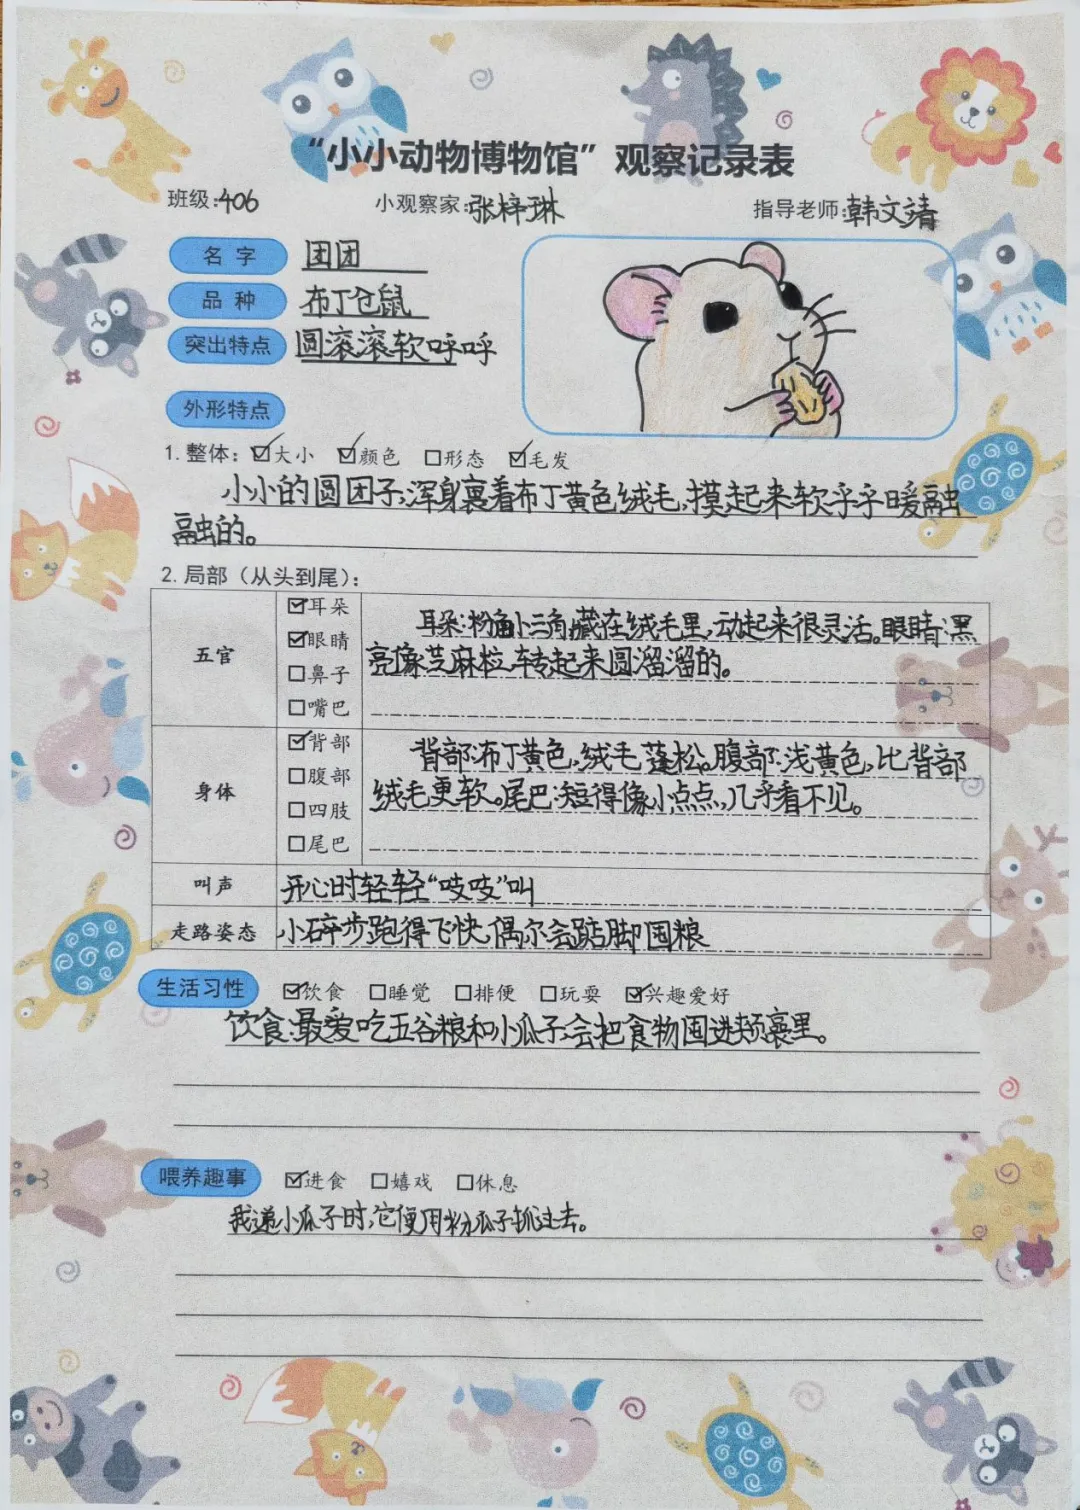 “小小动物博物馆”观察记录表
班级:406 小观察家:张梓琳 指导老师:韩文靖
名字 团团
品种 布丁仓鼠
突出特点 圆滚滚软呼呼
外形特点
1.整体:☑大小 ☑颜色 □形态 ☑毛发
小小的圆团子,浑身裹着布丁黄色绒毛,摸起来软乎乎暖融
融的。
2.局部(从头到尾):
五官
☑耳朵
☑眼睛
□鼻子
□嘴巴
耳朵:粉色小三角,藏在绒毛里,动起来很灵活。眼睛:黑
亮像芝麻粒,转起来圆溜溜的。
身体
☑背部
□腹部
□四肢
□尾巴
背部:布丁黄色,绒毛蓬松。腹部:浅黄色,比背部
绒毛更软。尾巴:短得像小点点,几乎看不见。
叫声 开心时轻轻“吱吱”叫
走路姿态 小碎步跑得飞快,偶尔会踮脚囤粮
生活习性 ☑饮食 □睡觉 □排便 □玩耍 ☑兴趣爱好
饮食:最爱吃五谷粮和小瓜子,会把食物囤进颊裹里。
喂养趣事 ☑进食 □嬉戏 □休息
我递小瓜子时,它便用粉瓜子抓过去。